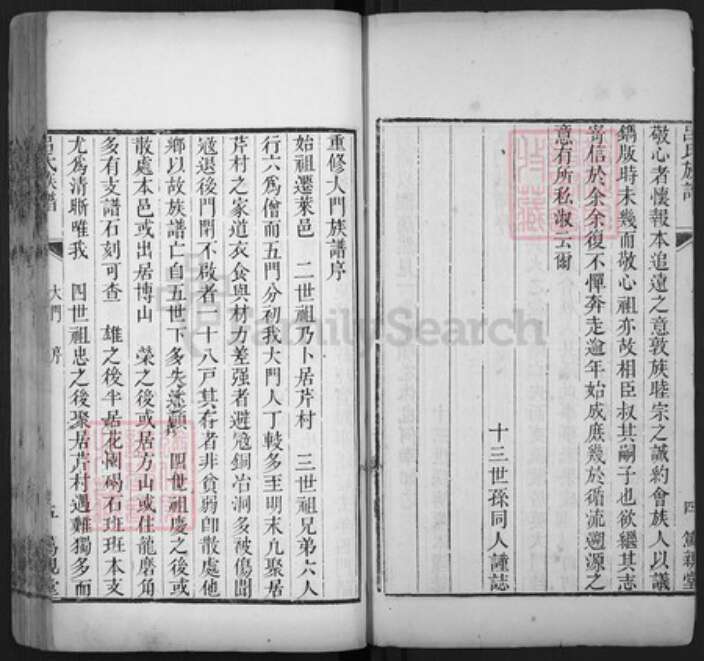 呂氏族譜
敬心者懷報本追遠之意敦族睦宗之誠約會族人以議
鐫版時未幾而敬心祖亦故相臣叔其嗣子也欲繼其志
寄信於余余復不憚奔走逾年始成庶幾於循流溯源之
意有所私淑云爾
十三世孫同人謹誌
四 篤親堂
重修大門族譜序
始祖遷萊邑 二世祖乃卜居芹村 三世祖兄弟六人
行六為僧而五門分初我大門人丁較多至明末凡聚居
芹村之家道衣食與材力差强者避寇銅冶洞多被傷聞
寇退後門閉不啟者二十八戸其存者非貧弱卽散處他
鄉以故族譜亡自五世下多失 四世祖慶之後或
散處本邑或出居博山 榮之後或居方山或住龍磨角
多有支譜石刻可查 雄之後半居花園碣石班班本支
尤為清晰唯我 四世祖忠之後聚居芹村遇難獨多而
呂氏族譜
大門 序
五 篤親堂
FamilySearch